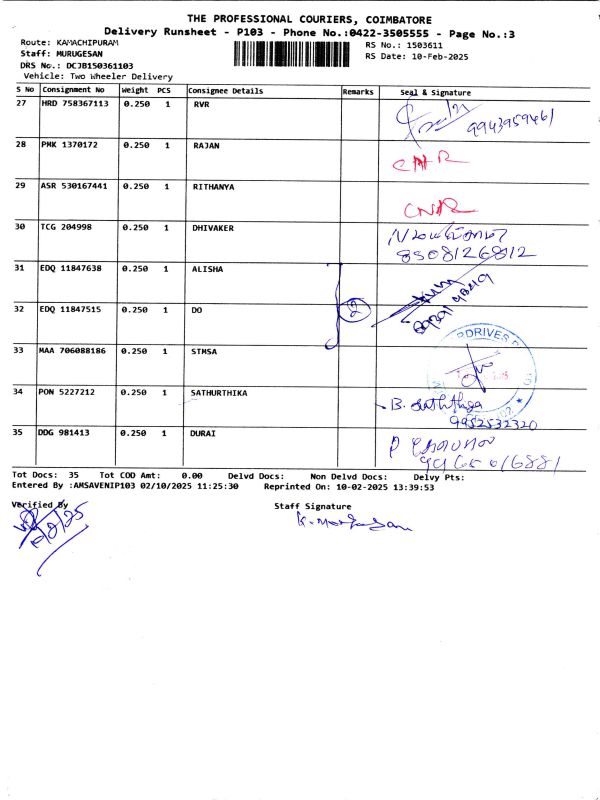 THE PROFESSIONAL COURIERS, COIMBATORE
Delivery Runsheet - P103 - Phone No.:0422-3505555 - Page No.:3
Route: KAMACHIPURAM
RS No.: 1503611
Staff: MURUGESAN
RS Date: 10-Feb-2025
DRS No.: DCJB150361103
Vehicle: Two Wheeler Delivery
S No Consignment No Weight PCS Consignee Details Remarks Seal & Signature
27 HRD 758367113 0.250 1 RVR
9943959461
28 PMK 1370172 0.250 1 RAJAN
29 ASR 530167441 0.250 1 RITHANYA
CNR
30 TCG 204998 0.250 1 DHIVAKER
8508126812
31 EDQ 11847638 0.250 1 ALISHA
32 EDQ 11847515 0.250 1 DO 2
33 MAA 706088186 0.250 1 STMSA
34 PON 5227212 0.250 1 SATHURTHIKA
9952532320
35 DDG 981413 0.250 1 DURAI
Tot Docs: 35 Tot COD Amt: 0.00 Delvd Docs: Non Delvd Docs: Delvy Pts:
Entered By :AMSAVENIP103 02/10/2025 11:25:30 Reprinted On: 10-02-2025 13:39:53
Verified By
Staff Signature